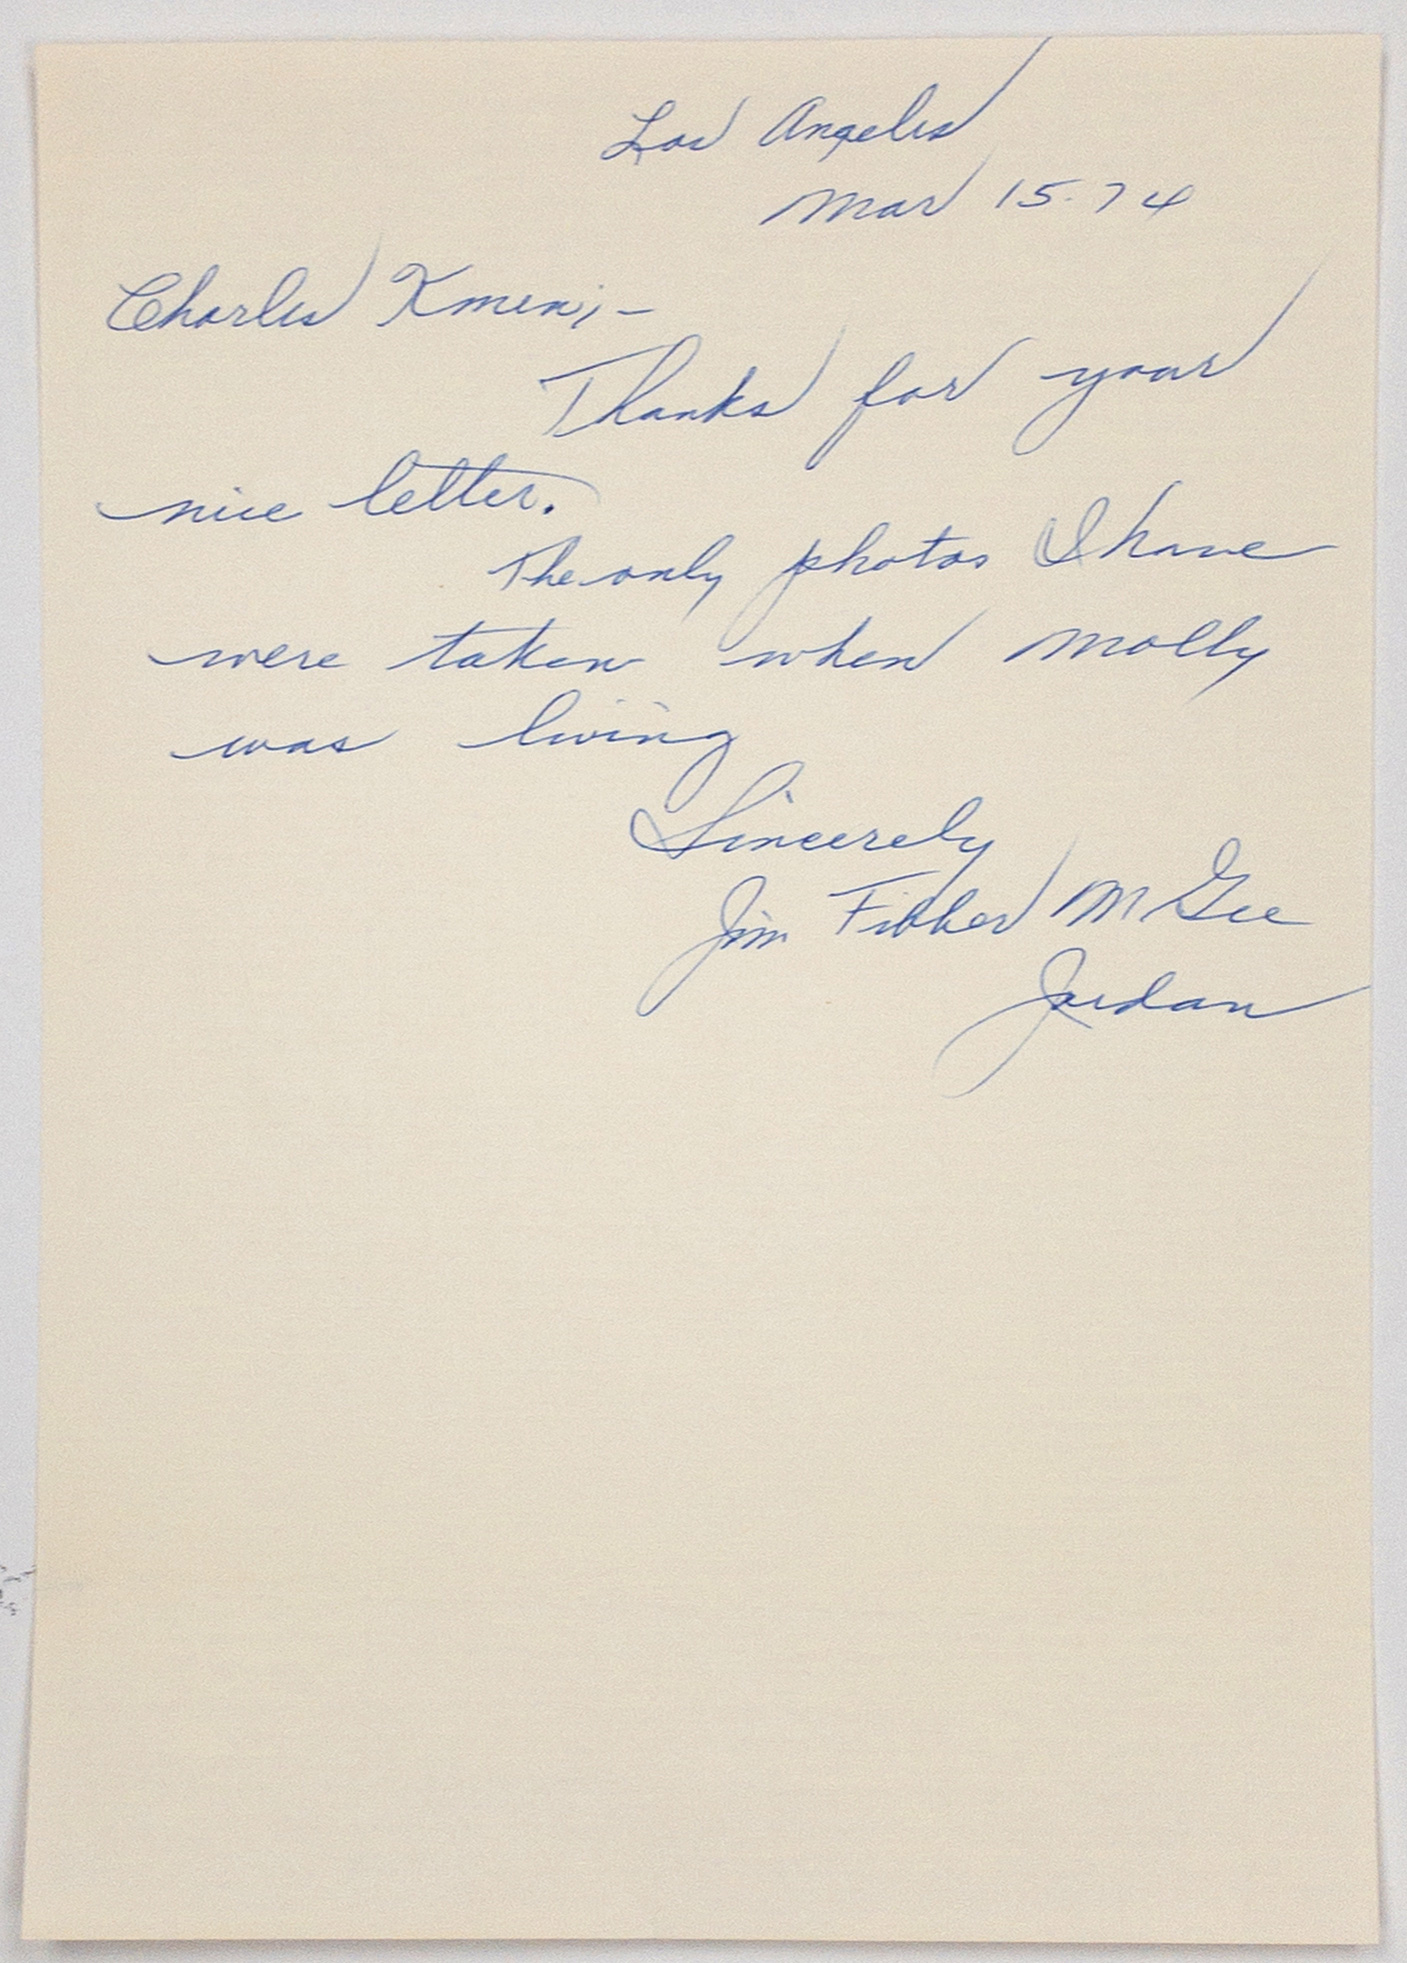 Los Angeles
Mar 15-74
Charles Kmen;-
Thanks for your
nice letter.
The only photos I have
were taken when Molly
was living
Sincerely
Jim Fibber McGee
Jordan